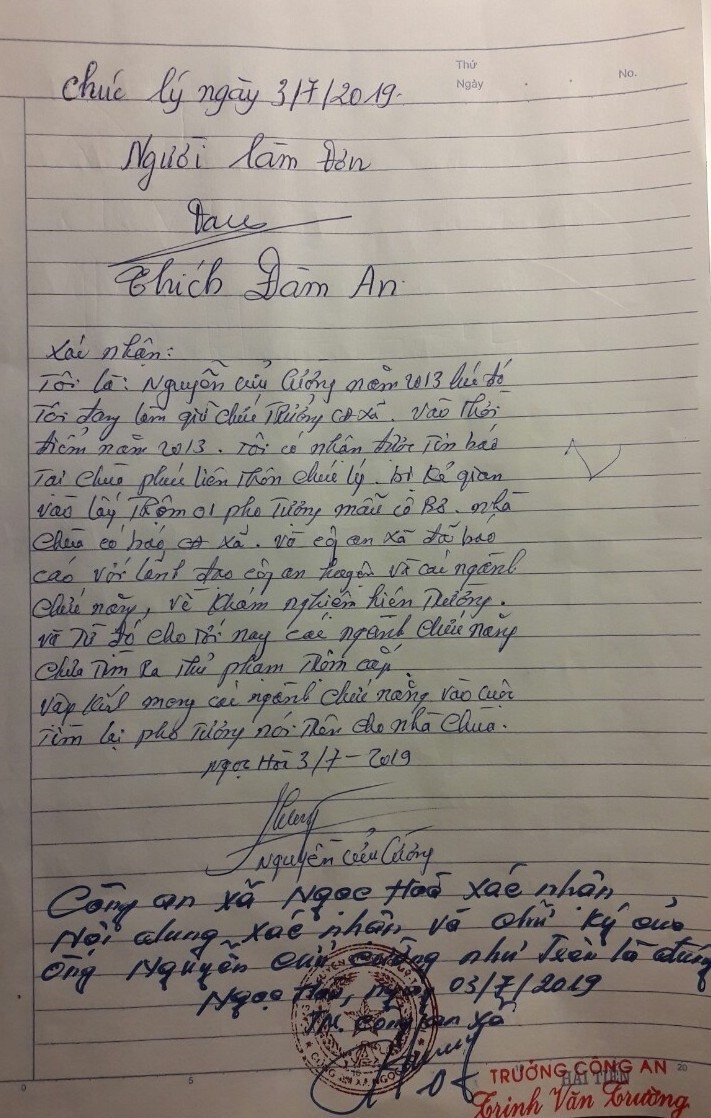 Thứ
Ngày . . No.
Chúc lý ngày 3/7/2019.
Người làm đơn
Thích Đàm An
Xác nhận:
Tôi là: Nguyễn Cửu Cường năm 2013 lúc đó
Tôi đang làm giữ chức Trưởng CA xã. Vào thời
điểm năm 2013. Tôi có nhận được Tin báo
Tại chùa phúc liên Thôn chúc lý. bị kẻ gian
vào lấy Trộm 01 pho Tượng mẫu cô Bơ. nhà
chùa có báo CA xã. Và công an xã đã báo
cáo với lãnh đạo công an huyện và các ngành
chức năng, về khám nghiệm hiện Trường.
và Từ đó cho Tới nay các ngành chức năng
chưa Tìm Ra Thủ phạm Trộm cắp
vậy kính mong các ngành chức năng vào cuộc
Tìm lại pho Tượng nói Trên cho nhà chùa.
Ngọc Hòa 3/7-2019
Nguyễn Cửu Cường
Công an xã Ngọc Hoà xác nhận
Nội dung xác nhận và chữ ký của
Ông Nguyễn Cửu Cường như Trên là đúng
Ngọc Hoà, ngày 03/7/2019
TM. Công an xã
TRƯỞNG CÔNG AN
HẢI TIẾN
Trịnh Văn Trường
0 5 20